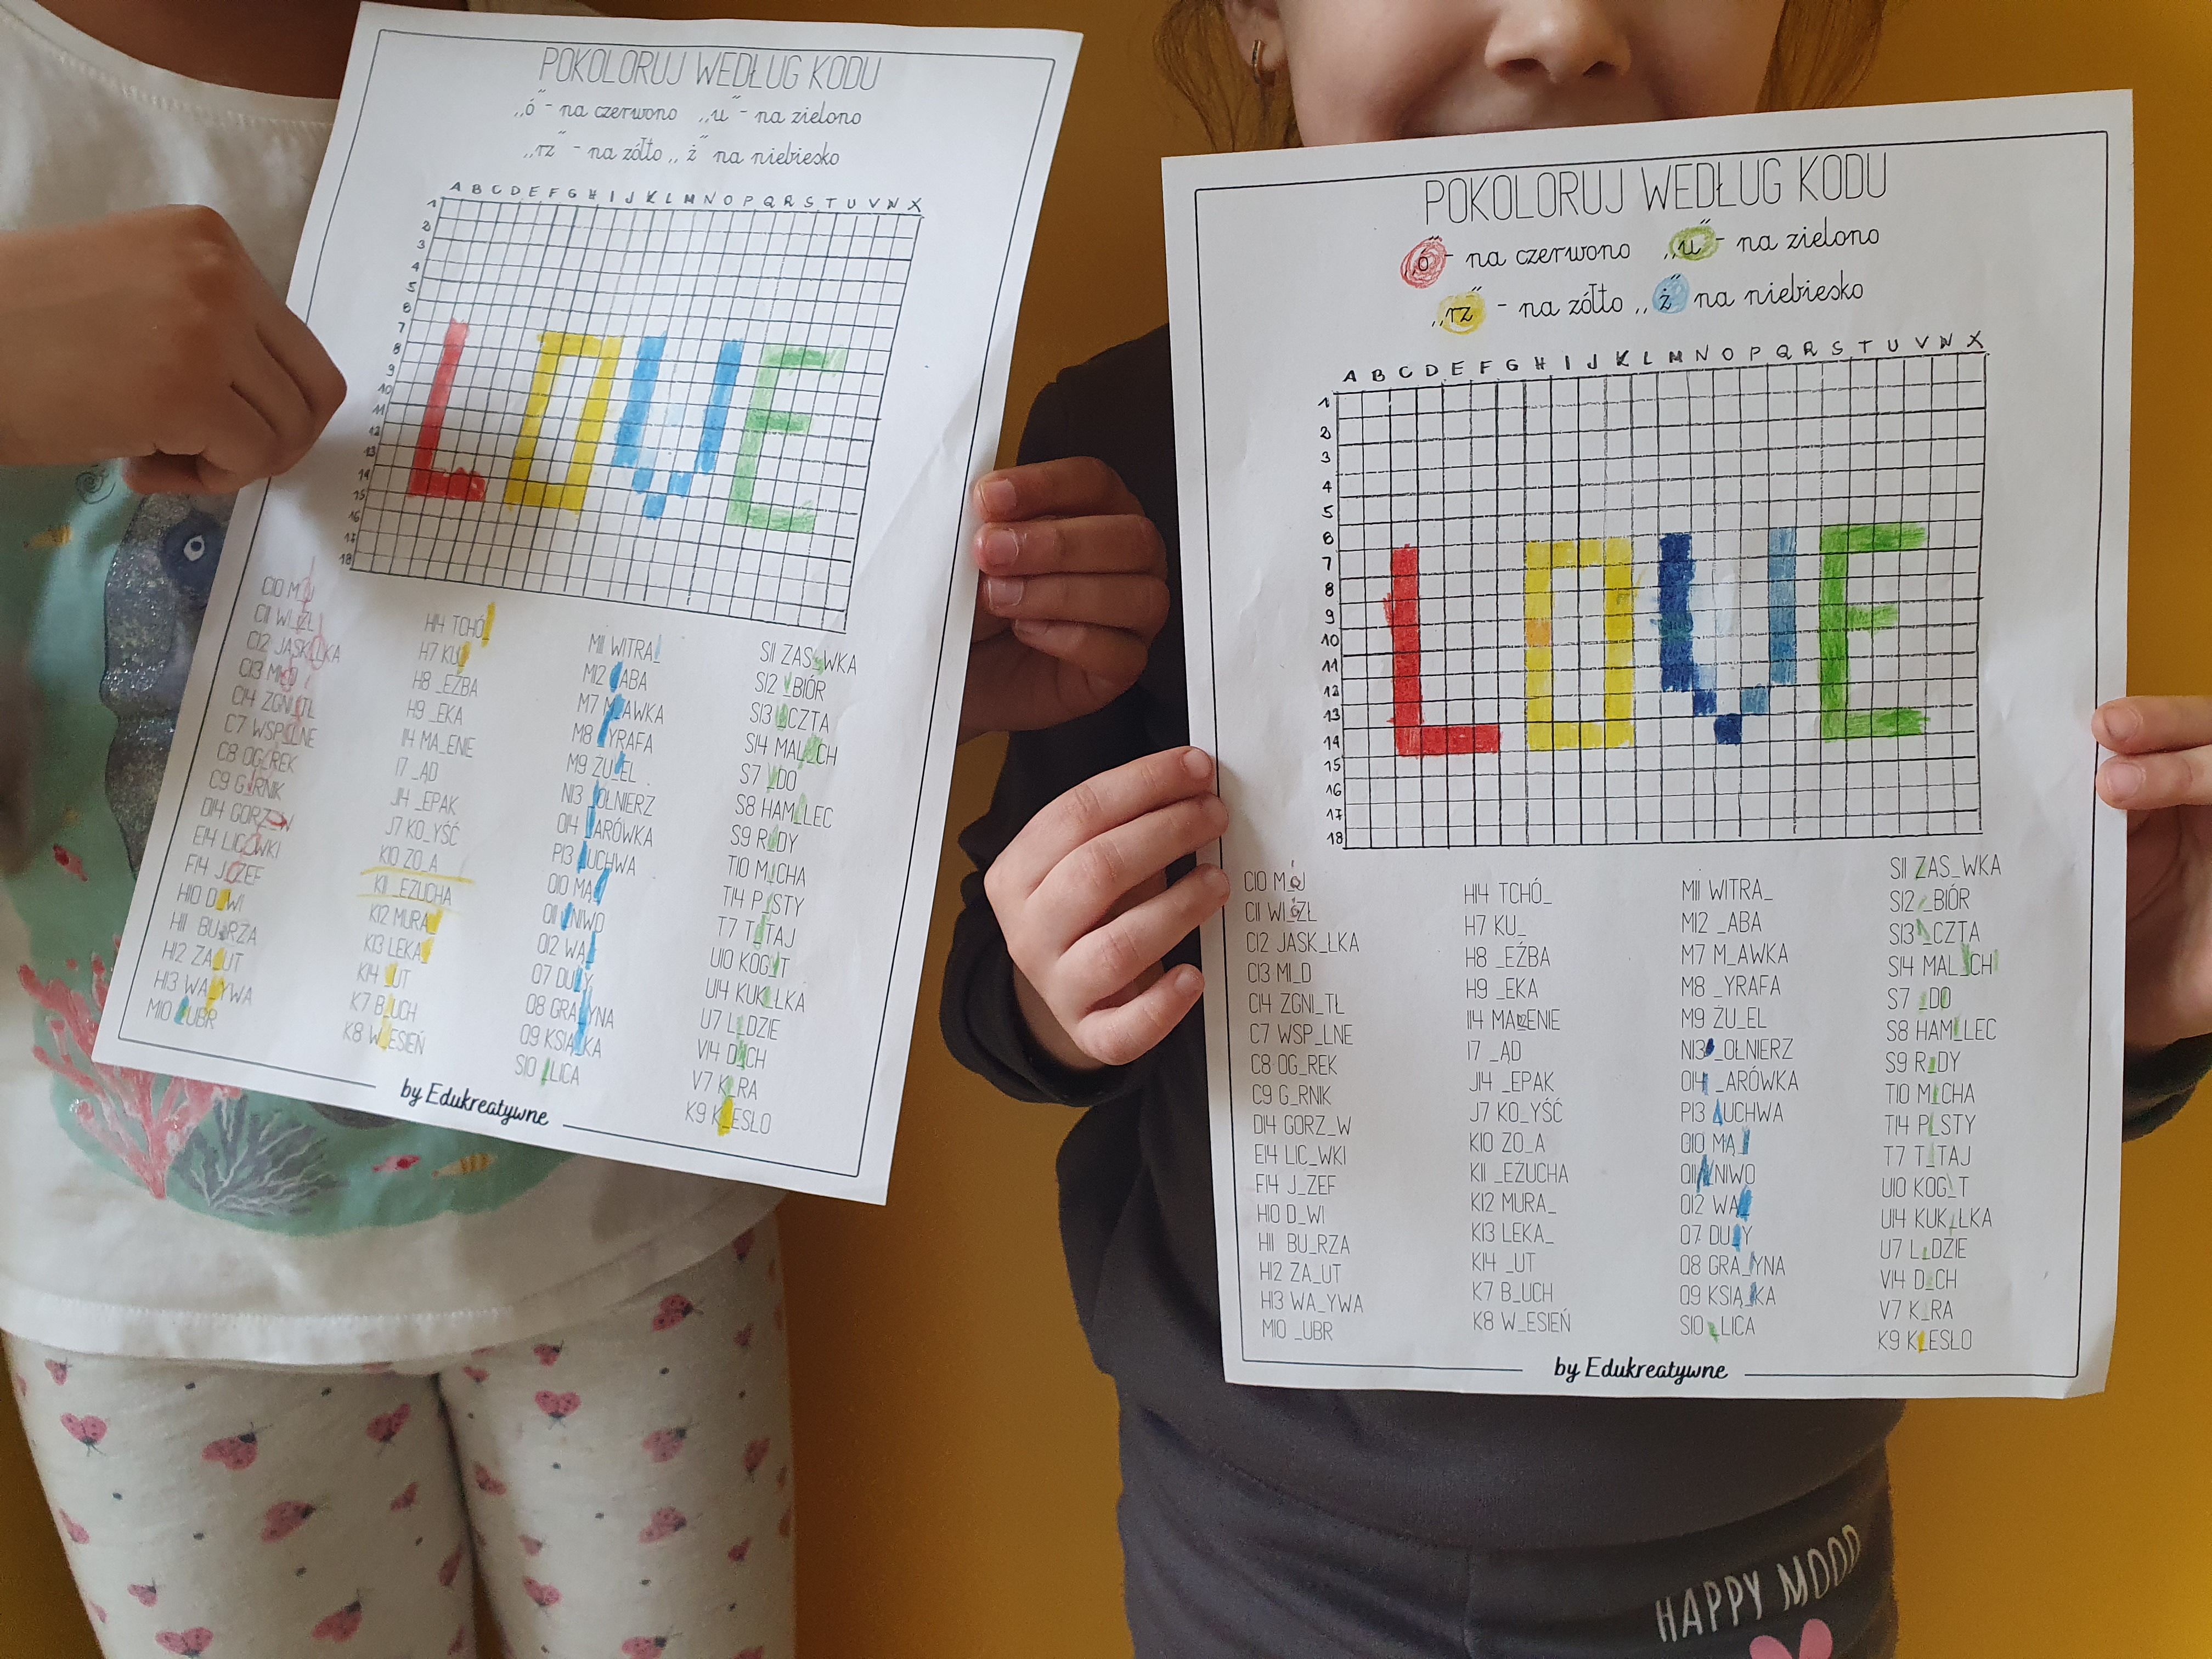 POKOLORUJ WEDŁUG KODU
„ó” - na czerwono „u” - na zielono
„rz” - na żółto „ż” na niebiesko
A B C D E F G H I J K L M N O P Q R S T U V W X
1
2
3
4
5
6
7
8
9
10
11
12
13
14
15
16
17
18
LOVE
C10 M_J
C11 WI_ZŁ
C12 JASK_ŁKA
C13 MI_D
C14 ZGNI_TŁ
C7 WSP_LNE
C8 OG_REK
C9 G_RNIK
D14 GORZ_W
E14 LIC_WKI
F14 J_ZEF
H10 D_WI
H11 BU_RZA
H12 ZA_UT
H13 WA_YWA
M10 _UBR
H14 TCHÓ_
H7 KU_
H8 _EŹBA
H9 _EKA
I14 MA_ENIE
I7 _ĄD
J14 _EPAK
J7 KO_YŚĆ
K10 ZO_A
K11 _EŻUCHA
K12 MURA_
K13 LEKA_
K14 _UT
K7 B_UCH
K8 W_ESIEŃ
M11 WITRA_
M12 _ABA
M7 M_AWKA
M8 _YRAFA
M9 ŻU_EL
N13 _OŁNIERZ
O14 _ARÓWKA
P13 _UCHWA
Q10 MĄ_
Q11 _NIWO
Q12 WA_
Q7 DU_Y
Q8 GRA_YNA
Q9 KSIĄ_KA
S10 _LICA
S11 ZAS_WKA
S12 _BIÓR
S13 _CZTA
S14 MAL_CH
S7 _DO
S8 HAM_LEC
S9 R_DY
T10 M_CHA
T14 P_STY
T7 T_TAJ
U10 KOG_T
U14 KUK_ŁKA
U7 L_DZIE
V14 D_CH
V7 K_RA
K9 K_ESŁO
by Edukreatywne
POKOLORUJ WEDŁUG KODU
„ó” - na czerwono „u” - na zielono
„rz” - na żółto „ż” na niebiesko
A B C D E F G H I J K L M N O P Q R S T U V W X
1
2
3
4
5
6
7
8
9
10
11
12
13
14
15
16
17
18
LOVE
C10 M_J
C11 WI_ZŁ
C12 JASK_ŁKA
C13 MI_D
C14 ZGNI_TŁ
C7 WSP_LNE
C8 OG_REK
C9 G_RNIK
D14 GORZ_W
E14 LIC_WKI
F14 J_ZEF
H10 D_WI
H11 BU_RZA
H12 ZA_UT
H13 WA_YWA
M10 _UBR
H14 TCHÓ_
H7 KU_
H8 _EŹBA
H9 _EKA
I14 MA_ENIE
I7 _ĄD
J14 _EPAK
J7 KO_YŚĆ
K10 ZO_A
K11 _EŻUCHA
K12 MURA_
K13 LEKA_
K14 _UT
K7 B_UCH
K8 W_ESIEŃ
M11 WITRA_
M12 _ABA
M7 M_AWKA
M8 _YRAFA
M9 ŻU_EL
N13 _OŁNIERZ
O14 _ARÓWKA
P13 _UCHWA
Q10 MĄ_
Q11 _NIWO
Q12 WA_
Q7 DU_Y
Q8 GRA_YNA
Q9 KSIĄ_KA
S10 _LICA
S11 ZAS_WKA
S12 _BIÓR
S13 _CZTA
S14 MAL_CH
S7 _DO
S8 HAM_LEC
S9 R_DY
T10 M_CHA
T14 P_STY
T7 T_TAJ
U10 KOG_T
U14 KUK_ŁKA
U7 L_DZIE
V14 D_CH
V7 K_RA
K9 K_ESŁO
by Edukreatywne
HAPPY MOOD